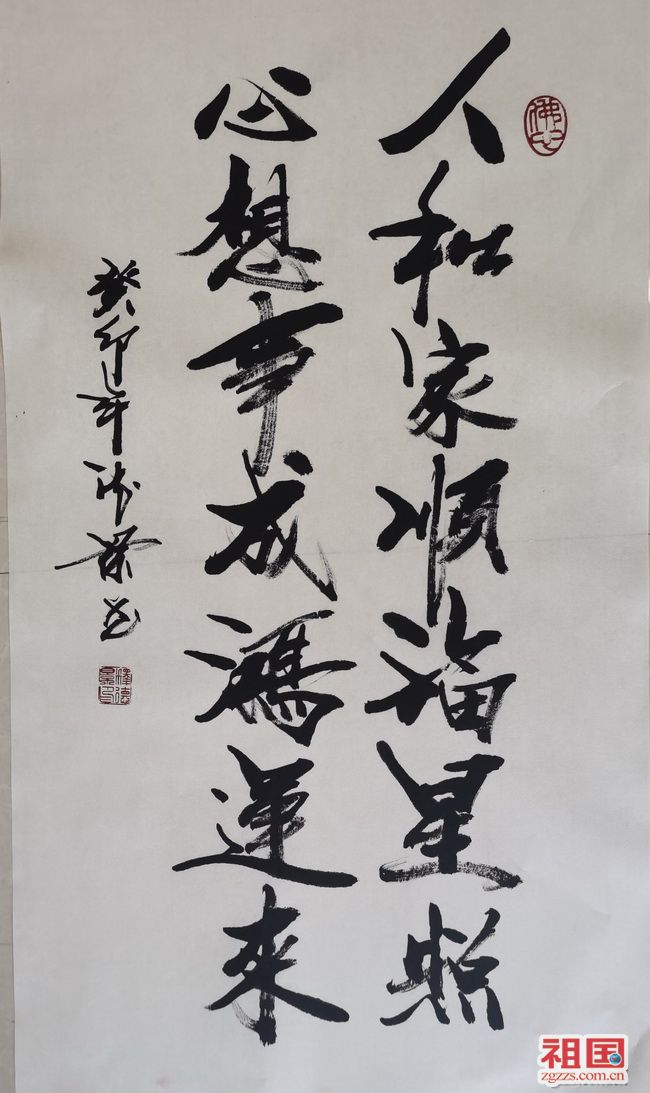 人和家顺福星照
心想事成鸿運来
癸卯年德景书
佛心
祖国
zgzzs.com.cn